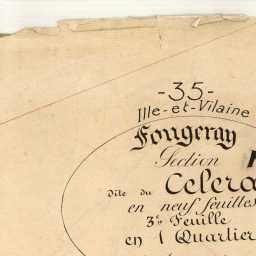 -35-
Ille-et-Vilaine
Fougeray
Section
dite du Celera
en neuf feuilles
3e Feuille
en 1 Quartier